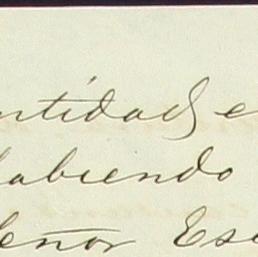 ntidad e
labiendo
eñor Esc